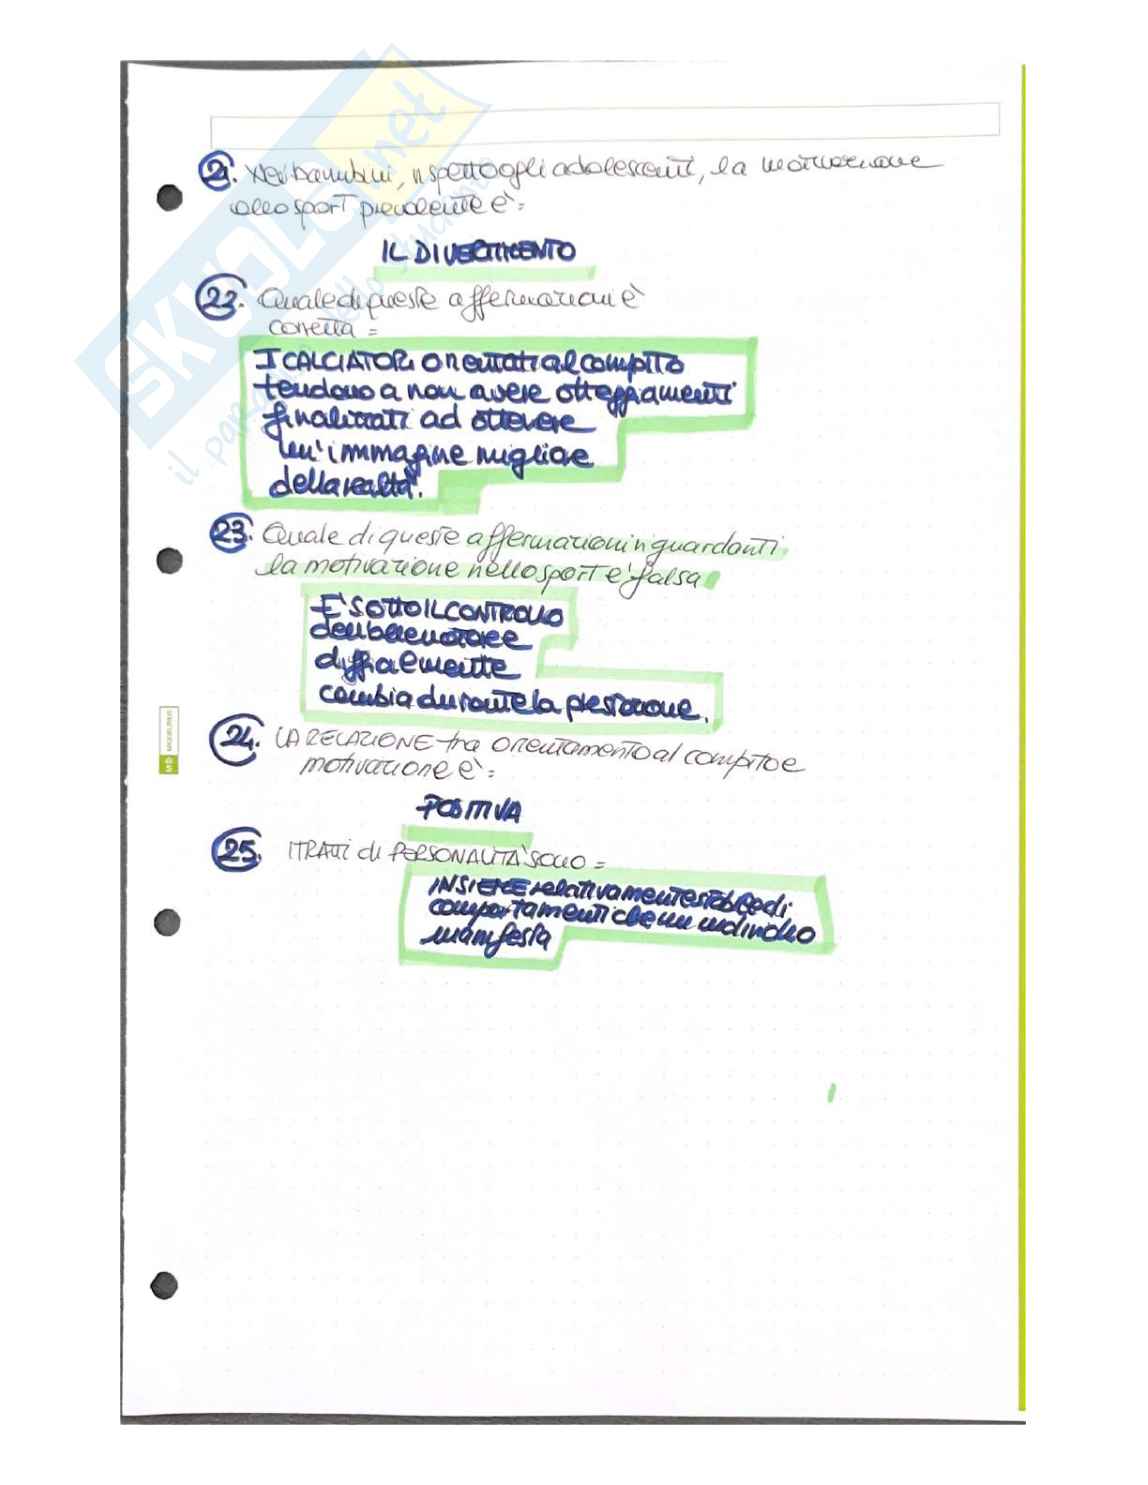 21. Nei bambini, rispetto agli adolescenti, la motivazione
allo sport prevalente è:
IL DIVERTIMENTO
22. Quale di queste affermazioni è
corretta =
I CALCIATORI orientati al compito
tendono a non avere atteggiamenti
finalizzati ad ottenere
un'immagine migliore
della realtà.
23. Quale di queste affermazioni riguardanti
la motivazione nello sport è falsa
È SOTTO IL CONTROLLO
deliberatore e
difficilmente
cambia durante la prestazione.
24. LA RELAZIONE tra orientamento al compito e
motivazione è:
POSITIVA
25. I TRATTI di PERSONALITÀ sono =
INSIEME relativamente stabile di
comportamenti che un individuo
manifesta
SKUOLA.net
il paradiso dello studente